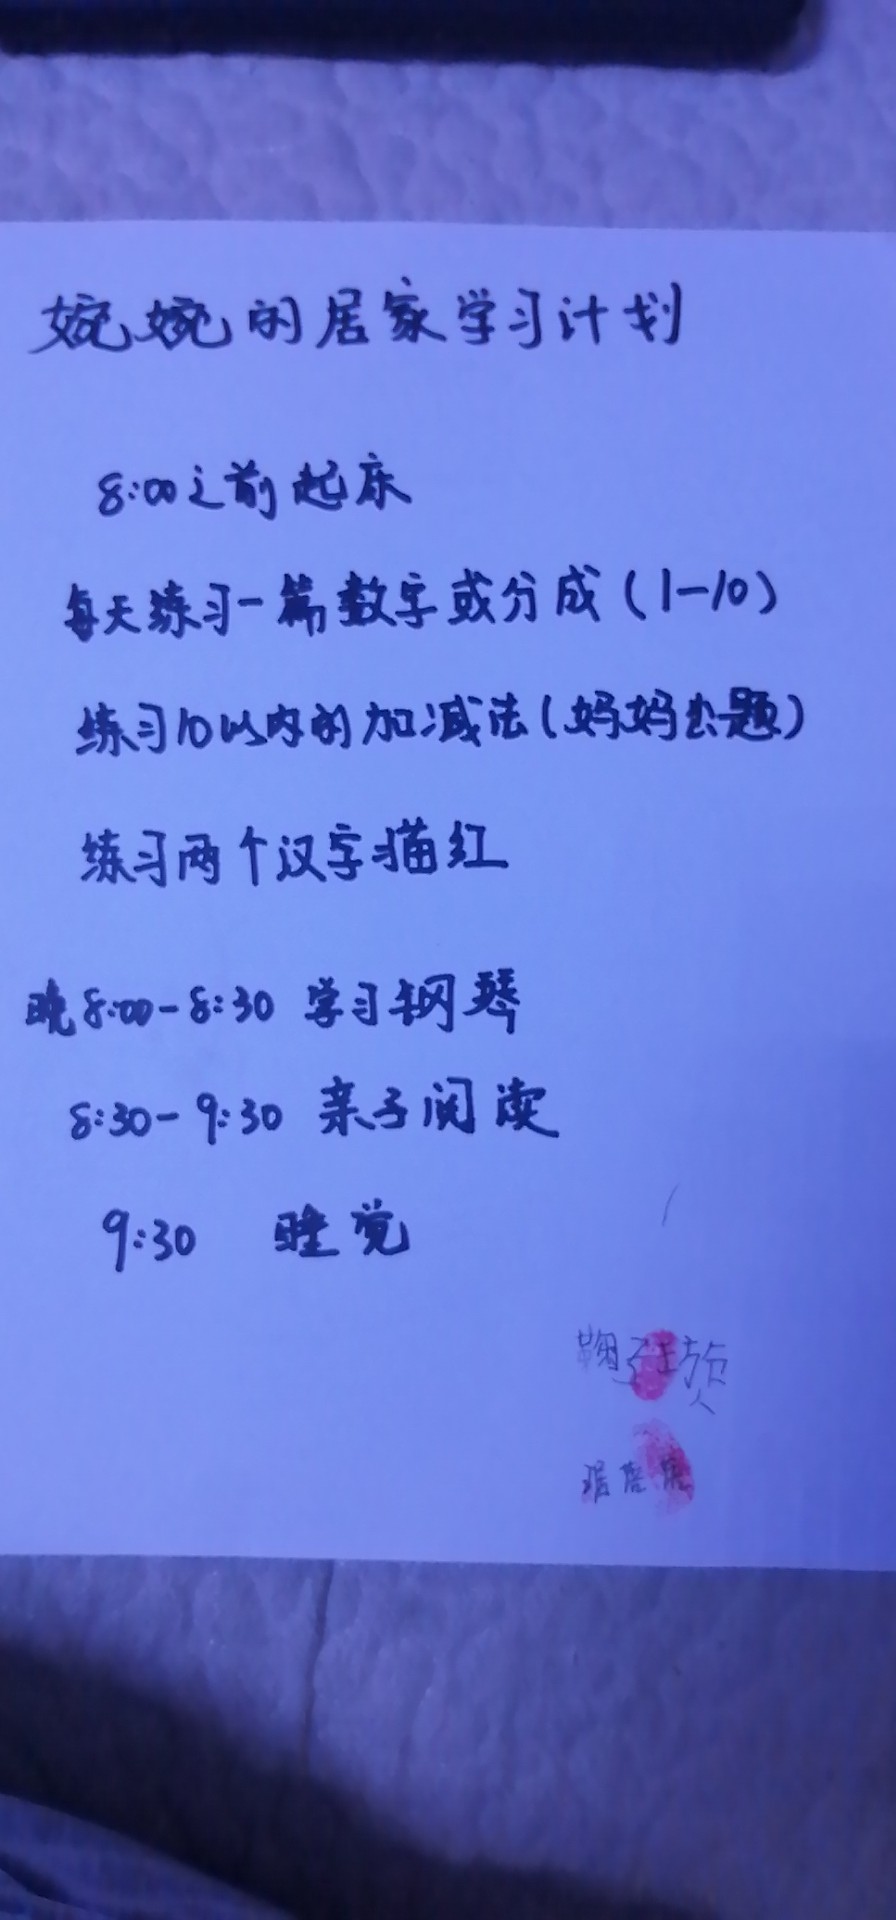 婉婉的居家学习计划
8:00之前起床
每天练习一篇数字或分成(1-10)
练习10以内的加减法(妈妈出题)
练习两个汉字描红
晚8:00-8:30 学习钢琴
8:30-9:30 亲子阅读
9:30 睡觉
鞠子